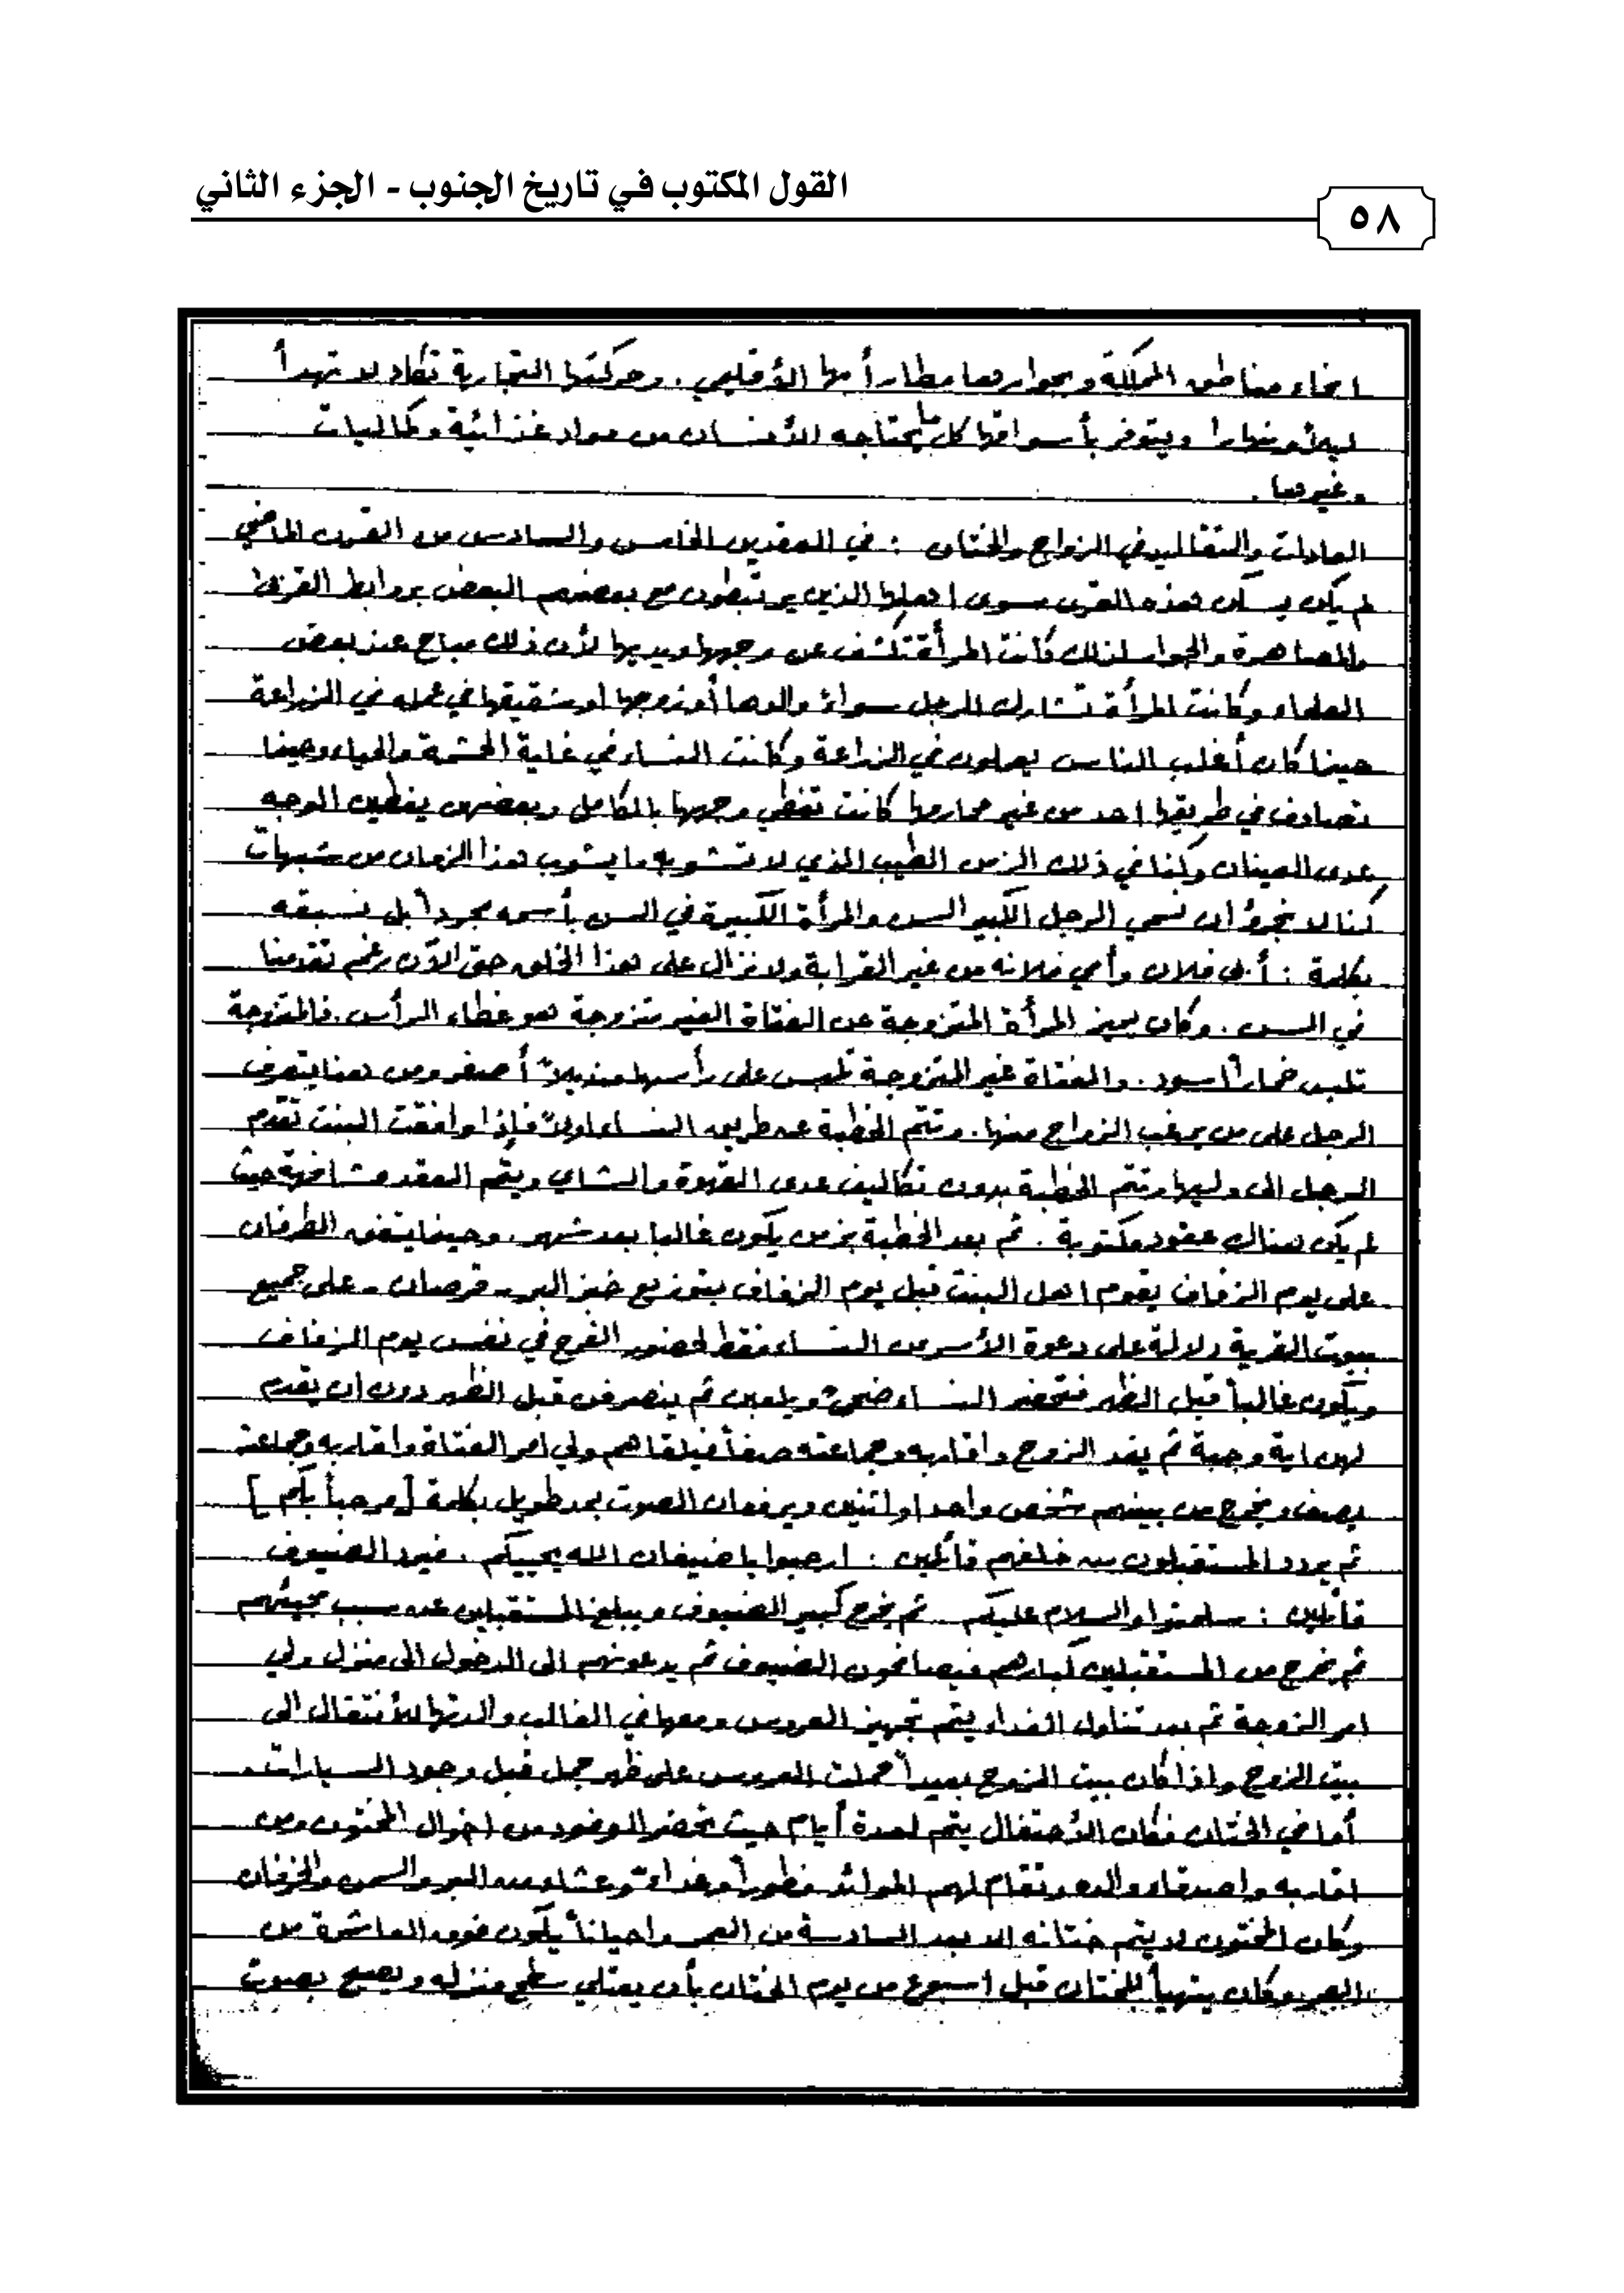 القول المكتوب في تاريخ الجنوب - الجزء الثاني
٥٨
انحاء مناطق المملكة وبجوارها مطار أبها الأقليمي . وحركتها التجارية تكاد لا تهدأ
ليلاً ونهارا ويتوفر بأسواقها كل ما يحتاجه الأنسان من مواد غذائية وكماليات
وغيرها .
العادات والتقاليد في الزواج والختان : في العقدين الخامس والسادس من القرن الماضي
لم يكن يسكن هذه القرى سوى اهلها الذين يرتبطون مع بعضهم البعض بروابط القربى
والمصاهرة والجوار لذلك كانت المرأة تكشف عن وجهها ويديها لأن ذلك مباح عند بعض
العلماء وكانت المرأة تشارك الرجل سواءً والدها أو زوجها او شقيقها في عمله في الزراعة
حينما كان أغلب الناس يعملون في الزراعة وكانت النساء في غاية الحشمة والحياء وحينما
تصادف في طريقها احد من غير محارمها كانت تغطي وجهها بالكامل وبعضهن يغطين الوجه
عدى العينان وكنا في ذلك الزمن الطيب الذي لا تشوبه ما يشوب هذا الزمان من شبهات
كنا لا نجرؤ ان نسمي الرجل الكبير السن والمرأة الكبيرة في السن بأسمه مجرداً بل نسبقه
بكلمة : أبي فلان وأمي فلانه من غير القرابة ولا نزال على هذا الخلق حتى الآن رغم تقدمنا
في السن . وكان يميز المرأة المتزوجة عن الفتاة الغير متزوجة هو غطاء الرأس . فالمتزوجة
تلبس خماراً اسود . والفتاة غير المتزوجة تلبس على رأسها منديلاً أصفر ومن هنا يتعرف
الرجل على من يرغب الزواج منها . وتتم الخطبة عن طريق النساء اولاً فإذا وافقت البنت تقدم
الرجل الى وليها وتتم الخطبة بدون تكاليف عدى القهوة والشاي ويتم العقد مشافهة حيث
لم يكن هناك عقود مكتوبة . ثم بعد الخطبة بزمن يكون غالبا بعد شهر . وحينما يتفق الطرفان
على يوم الزفاف يقوم اهل البنت قبل يوم الزفاف بتوزيع خبز البر - قرصان - على جميع
بيوت القرية دلالة على دعوة الأسر من النساء فقط لحضور الفرح في نفس يوم الزفاف
ويكون غالباً قبل الظهر فتحضر النساء ضحىً ويلعبن ثم ينصرفن قبل الظهر دون ان يقدم
لهن اية وجبة ثم يفد الزوج واقاربه وجماعته صفاً فيلقاهم ولي امر الفتاة واقاربه وجماعته
بصف ويخرج من بينهم شخص واحد او اثنين ويرفعان الصوت بمد طويل بكلمة [ مرحباً بكم ]
ثم يردد المستقبلون من خلفهم قائلين : ارحبوا يا ضيفان الله يحييكم . فيرد الضيوف
قائلين : سلمتوا والسلام عليكم . ثم يخرج كبير الضيوف ويبلغ المستقبلين عن سبب مجيئهم
ثم يخرج من المستقبلين كبارهم فيصافحون الضيوف ثم يدعونهم الى الدخول الى منزل ولي
امر الزوجة ثم بعد تناول الغداء يتم تجهيز العروس ومعها في الغالب والدتها للأنتقال الى
بيت الزوج واذا كان بيت الزوج بعيداً حملت العروس على ظهر جمل قبل وجود السيارات .
أما في الختان فكان الأحتفال يتم لعدة أيام حيث تحضر الوفود من اخوال المختون ومن
اقاربه واصدقاء والده وتقام لهم الموائد فطوراً وغداءً وعشاء من البر والسمن والخرفان
وكان المختون لا يتم ختانه الا بعد السادسة من العمر واحياناً يكون فوق العاشرة من
العمر وكان يتهيأ للختان قبل اسبوع من يوم الختان بأن يعتلي سطح منزله ويصيح بصوت